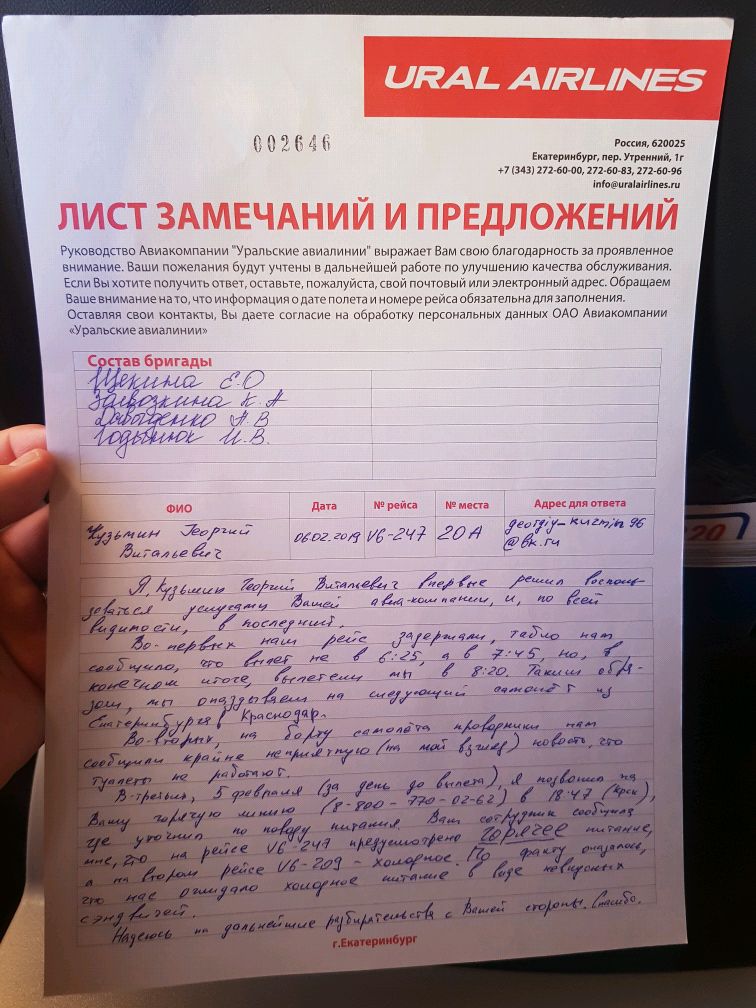 URAL AIRLINES
002646
Россия, 620025
Екатеринбург, пер. Утренний, 1г
+7 (343) 272-60-00, 272-60-83, 272-60-96
info@uralairlines.ru
ЛИСТ ЗАМЕЧАНИЙ И ПРЕДЛОЖЕНИЙ
Руководство Авиакомпании "Уральские авиалинии" выражает Вам свою благодарность за проявленное
внимание. Ваши пожелания будут учтены в дальнейшей работе по улучшению качества обслуживания.
Если Вы хотите получить ответ, оставьте, пожалуйста, свой почтовый или электронный адрес. Обращаем
Ваше внимание на то, что информация о дате полета и номере рейса обязательна для заполнения.
Оставляя свои контакты, Вы даете согласие на обработку персональных данных ОАО Авиакомпании
«Уральские авиалинии»
Состав бригады
Щекина Е.О
К.А
Давыденко А.В
Годынюк И.В.
ФИО Дата № рейса № места Адрес для ответа
Кузьмин Георгий 06.02.2019 V6-247 20А georgiy_kuzmin96
Витальевич @bk.ru
Я, Кузьмин Георгий Витальевич впервые решил восполь-
зоваться услугами Вашей авиа-компании, и, по всей
видимости, в последний.
Во-первых наш рейс задержали, табло нам
сообщило, что вылет не в 6:25, а в 7:45, но, в
конечном итоге, вылетели мы в 8:20. Таким обра-
зом, мы опаздываем на следующий самолёт из
Екатеринбурга в Краснодар.
Во-вторых, на борту самолёта проводники нам
сообщили крайне неприятную (на мой взгляд) новость, что
туалеты не работают.
В-третьих, 5 февраля (за день до вылета), я позвонил на
Вашу горячую линию (8-800-770-02-62) в 18:47 (Крск),
где уточнил по поводу питания. Ваш сотрудник сообщил
мне, что на рейсе V6-247 предусмотрено горячее питание,
а на втором рейсе V6-209 – холодное. По факту оказалось,
что нас ожидало холодное питание в виде невкусных
сэндвичей.
Надеюсь на дальнейшие разбирательства с Вашей стороны. Спасибо.
г.Екатеринбург
20